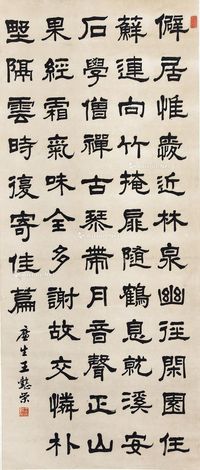 僻居惟愛近林泉幽徑閑園任
蘚連向竹掩扉隨鶴息就溪安
石學僧禪古琹帶月音聲正山
果經霜氣味全多謝故交憐朴
野隔雲時復寄佳篇
廉生王懿榮